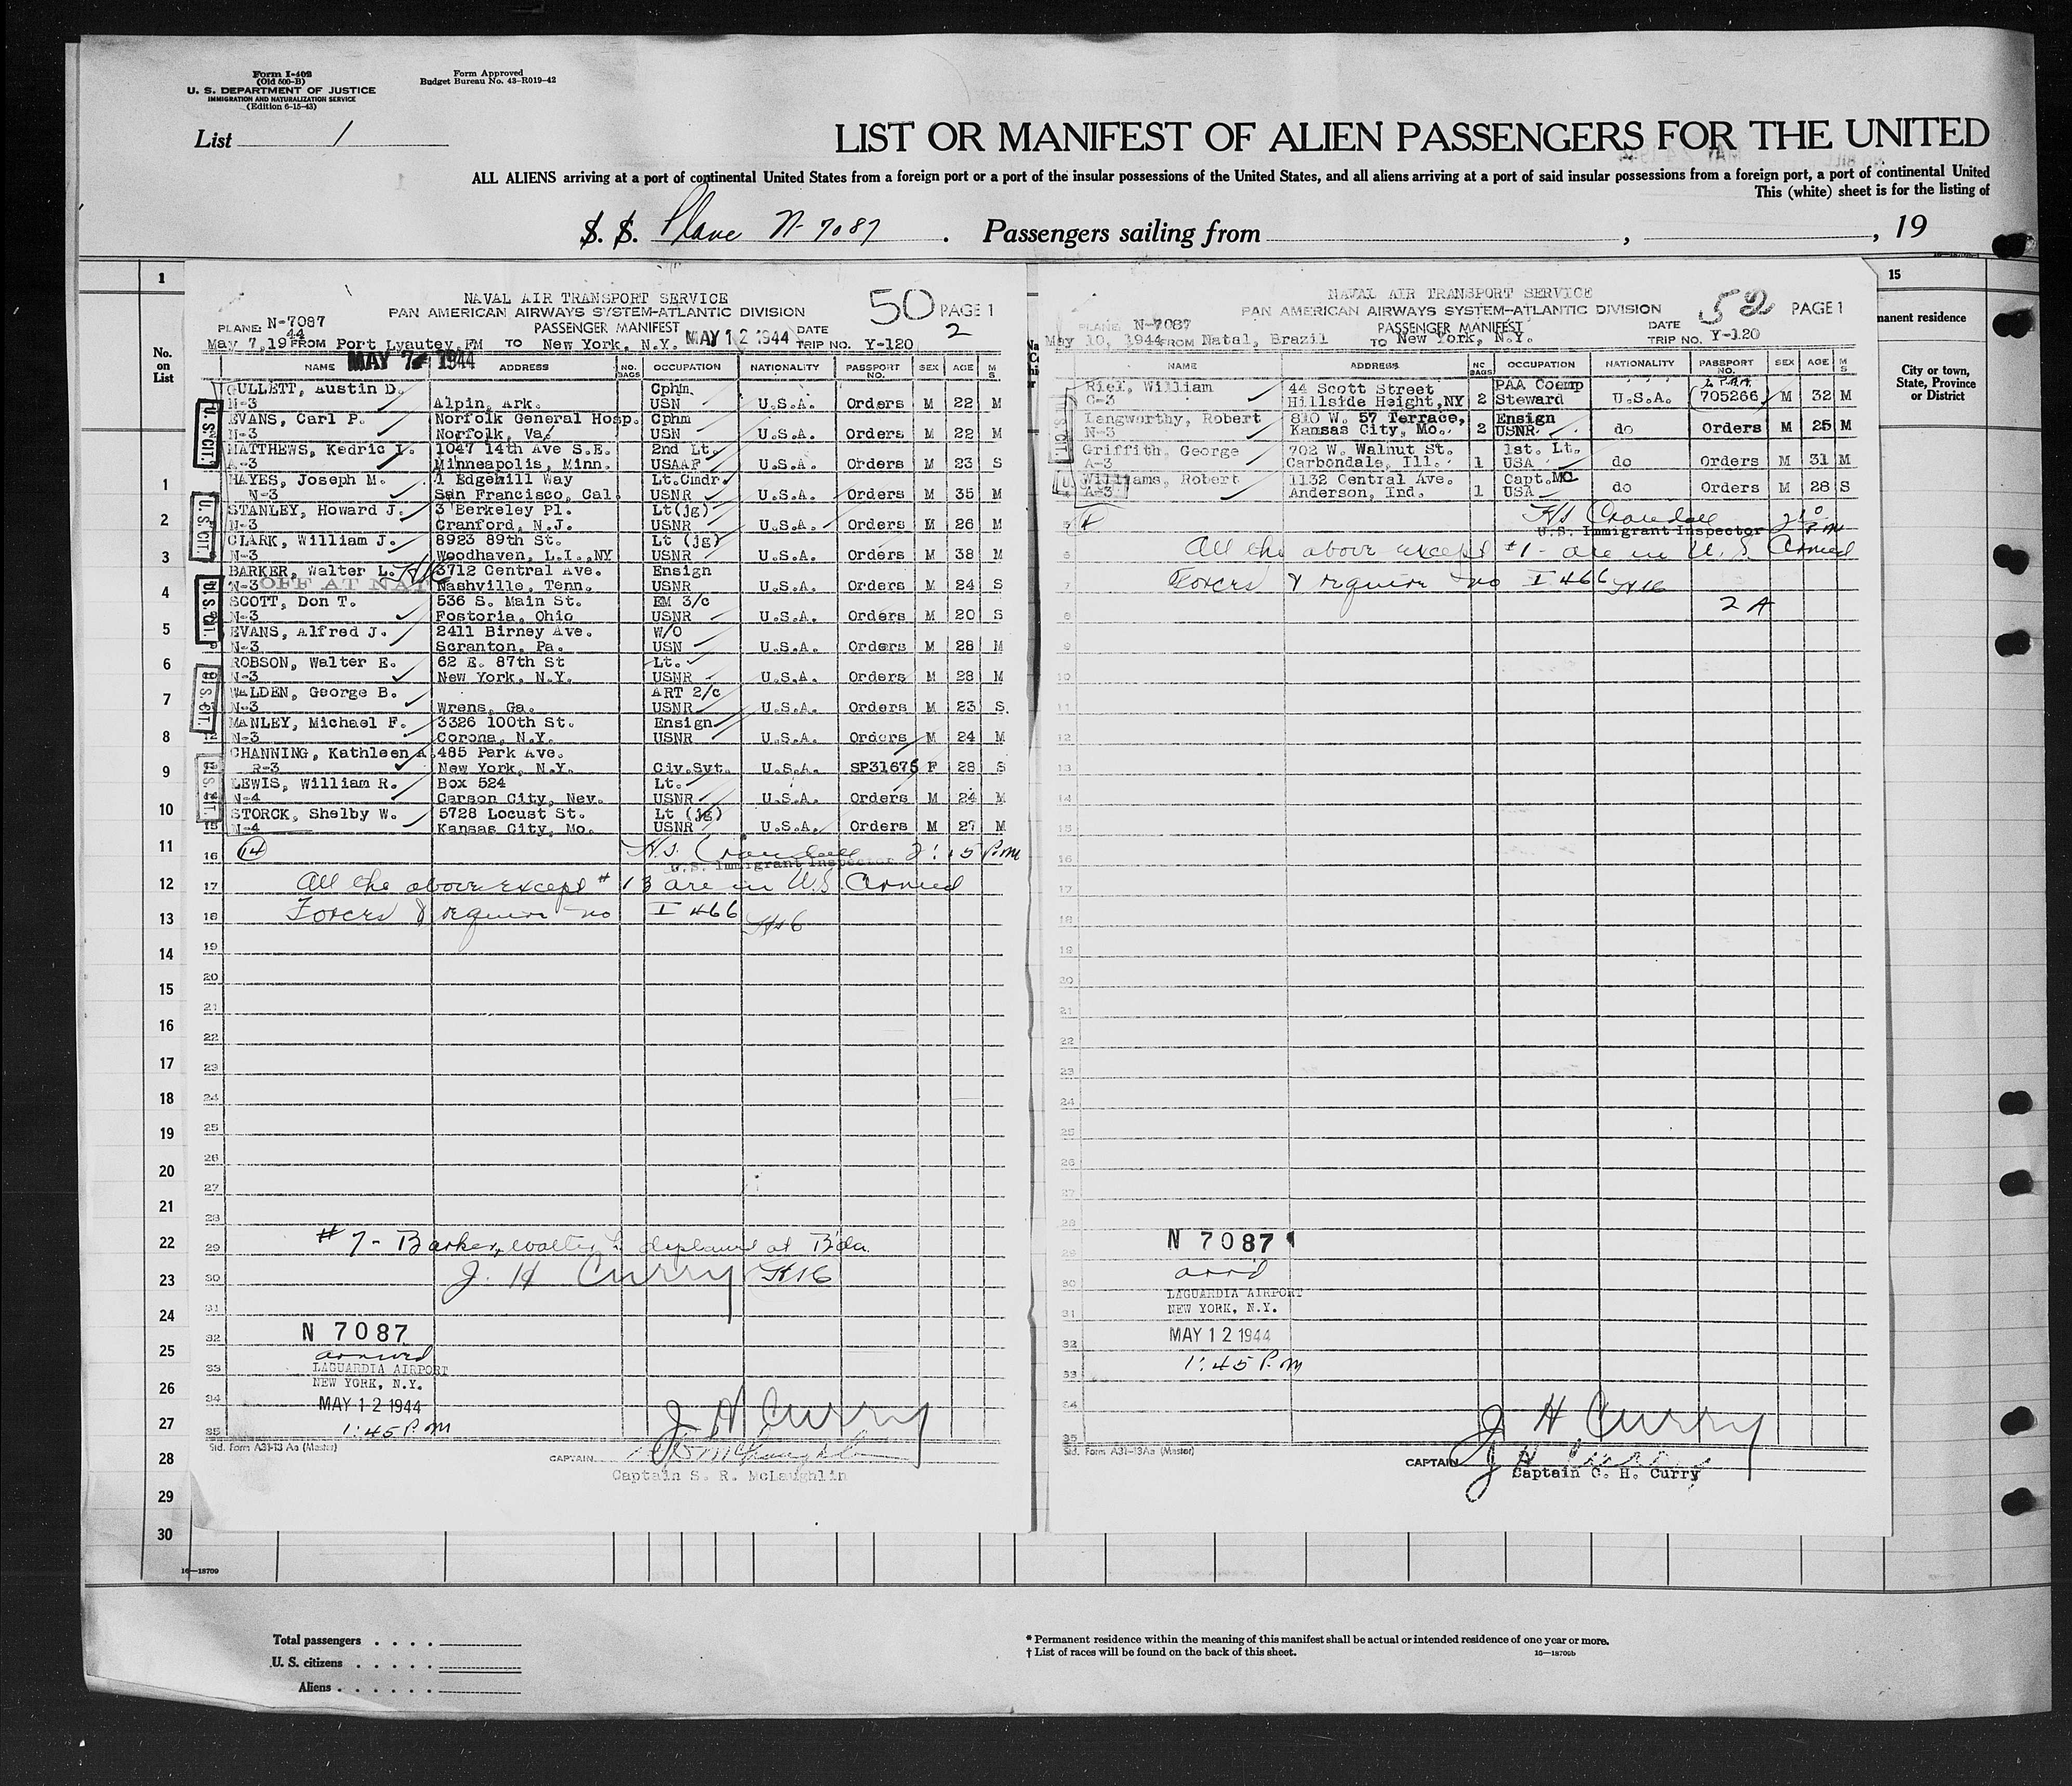 Form I-402
(Old 500-B)
U. S. DEPARTMENT OF JUSTICE
IMMIGRATION AND NATURALIZATION SERVICE
(Edition 6-15-43)
Form Approved
Budget Bureau No. 43-R019-42
List 1
LIST OR MANIFEST OF ALIEN PASSENGERS FOR THE UNITED
ALL ALIENS arriving at a port of continental United States from a foreign port or a port of the insular possessions of the United States, and all aliens arriving at a port of said insular possessions from a foreign port, a port of continental United
This (white) sheet is for the listing of
S. S. Plane N-7087. Passengers sailing from , , 19
1
No. on List
NAVAL AIR TRANSPORT SERVICE 50 PAGE 1
PAN AMERICAN AIRWAYS SYSTEM-ATLANTIC DIVISION
PLANE: N-7087 PASSENGER MANIFEST MAY 12 1944 DATE 2
May 7, 1944 FROM Port Lyautey, FM TO New York, N.Y. TRIP NO. Y-120
MAY 7 1944
NAME ADDRESS NO. BAGS OCCUPATION NATIONALITY PASSPORT NO. SEX AGE M S
GULLETT, Austin D. Cphm.
N-3 Alpin, Ark. USN U.S.A. Orders M 22 M
EVANS, Carl P. Norfolk General Hosp. Cphm
N-3 Norfolk, Va. USN U.S.A. Orders M 22 M
MATTHEWS, Kedric L. 1047 14th Ave S.E. 2nd Lt.
A-3 Minneapolis, Minn. USAAF U.S.A. Orders M 23 S
HAYES, Joseph M. 1 Edgehill Way Lt.Cmdr.
N-3 San Francisco, Cal. USNR U.S.A. Orders M 35 M
STANLEY, Howard J. 3 Berkeley Pl. Lt(jg)
N-3 Cranford, N.J. USNR U.S.A. Orders M 26 M
CLARK, William J. 8923 89th St. Lt (jg)
N-3 Woodhaven, L.I.,NY USNR U.S.A. Orders M 38 M
BARKER, Walter L. 3712 Central Ave. Ensign
N-3 OFF AT NAT Nashville, Tenn. USNR U.S.A. Orders M 24 S
SCOTT, Don T. 536 S. Main St. EM 3/c
N-3 Fostoria, Ohio USNR U.S.A. Orders M 20 S
EVANS, Alfred J. 2411 Birney Ave. W/O
N-3 Scranton, Pa. USN U.S.A. Orders M 28 M
ROBSON, Walter E. 62 E. 87th St Lt.
N-3 New York, N.Y. USNR U.S.A. Orders M 28 M
WALDEN, George B. ART 2/c
N-3 Wrens, Ga. USNR U.S.A. Orders M 23 S
MANLEY, Michael F. 3326 100th St. Ensign
12 N-3 Corona, N.Y. USNR U.S.A. Orders M 24 M
CHANNING, Kathleen A 485 Park Ave.
R-3 New York, N.Y. Civ.Svt. U.S.A. SP31675 F 28 S
LEWIS, William R. Box 524 Lt.
N-4 Carson City, Nev. USNR U.S.A. Orders M 24 M
STORCK, Shelby W. 5728 Locust St. Lt (jg)
15 N-4 Kansas City, Mo. USNR U.S.A. Orders M 27 M
U.S.CIT.
U.S.CIT.
U.S.CIT.
U.S.CIT.
U.S.CIT.
16 14 H.S. Crandall 2:15 P.M
U.S. Immigrant Inspector
17 All the above except #13 are in U.S. Armed
18 Forces & require no I 466
19
20
21
22
23
24
25
26
27
28
29 #7- Barker, Walter L. deplaned at B'da.
30 J. H Curry
31
32 N 7087
arrived
33 LAGUARDIA AIRPORT
NEW YORK, N.Y.
34 MAY 12 1944
35 1:45 P.M
J H Curry
Std. Form A31-13 Aa (Master)
CAPTAIN S R McLaughlin
Captain S. R. McLaughlin
NAVAL AIR TRANSPORT SERVICE 52 PAGE 1
PAN AMERICAN AIRWAYS SYSTEM-ATLANTIC DIVISION
PLANE: N-7087 PASSENGER MANIFEST DATE
May 10, 1944 FROM Natal, Brazil TO New York, N.Y. TRIP NO. Y-120
NAME ADDRESS NO BAGS OCCUPATION NATIONALITY PASSPORT NO. SEX AGE M S
Riel, William 44 Scott Street PAA Coemp
C-3 Hillside Height,NY 2 Steward U.S.A. 705266 M 32 M
Langworthy, Robert 810 W. 57 Terrace, Ensign
N-3 Kansas City, Mo. 2 USNR do Orders M 25 M
Griffith, George 702 W. Walnut St. 1st. Lt.
A-3 Carbondale, Ill. 1 USA do Orders M 31 M
Williams, Robert 1132 Central Ave. Capt.MC
A-3 Anderson, Ind. 1 USA do Orders M 28 S
4 H S Crandall
U.S. Immigrant Inspector
All the above except #1- are in U. S. Armed
7 Forces & require no I 466
8 2 A
9
10
11
12
13
14
15
16
17
18
19
20
21
22
23
24
25
26
27
28
N 7087
29
arr'd
30 LAGUARDIA AIRPORT
31 NEW YORK, N.Y.
32 MAY 12 1944
1:45 P.M
33
34
35
J H Curry
Std. Form A31-13Aa (Master)
CAPTAIN J H Curry
Captain C. H. Curry
15
manent residence
City or town, State, Province or District
1
2
3
4
5
6
7
8
9
10
11
12
13
14
15
16
17
18
19
20
21
22
23
24
25
26
27
28
29
30
16—18709
Total passengers . . . .
U. S. citizens . . . . .
Aliens . . . . . .
* Permanent residence within the meaning of this manifest shall be actual or intended residence of one year or more.
† List of races will be found on the back of this sheet.
16—18709b